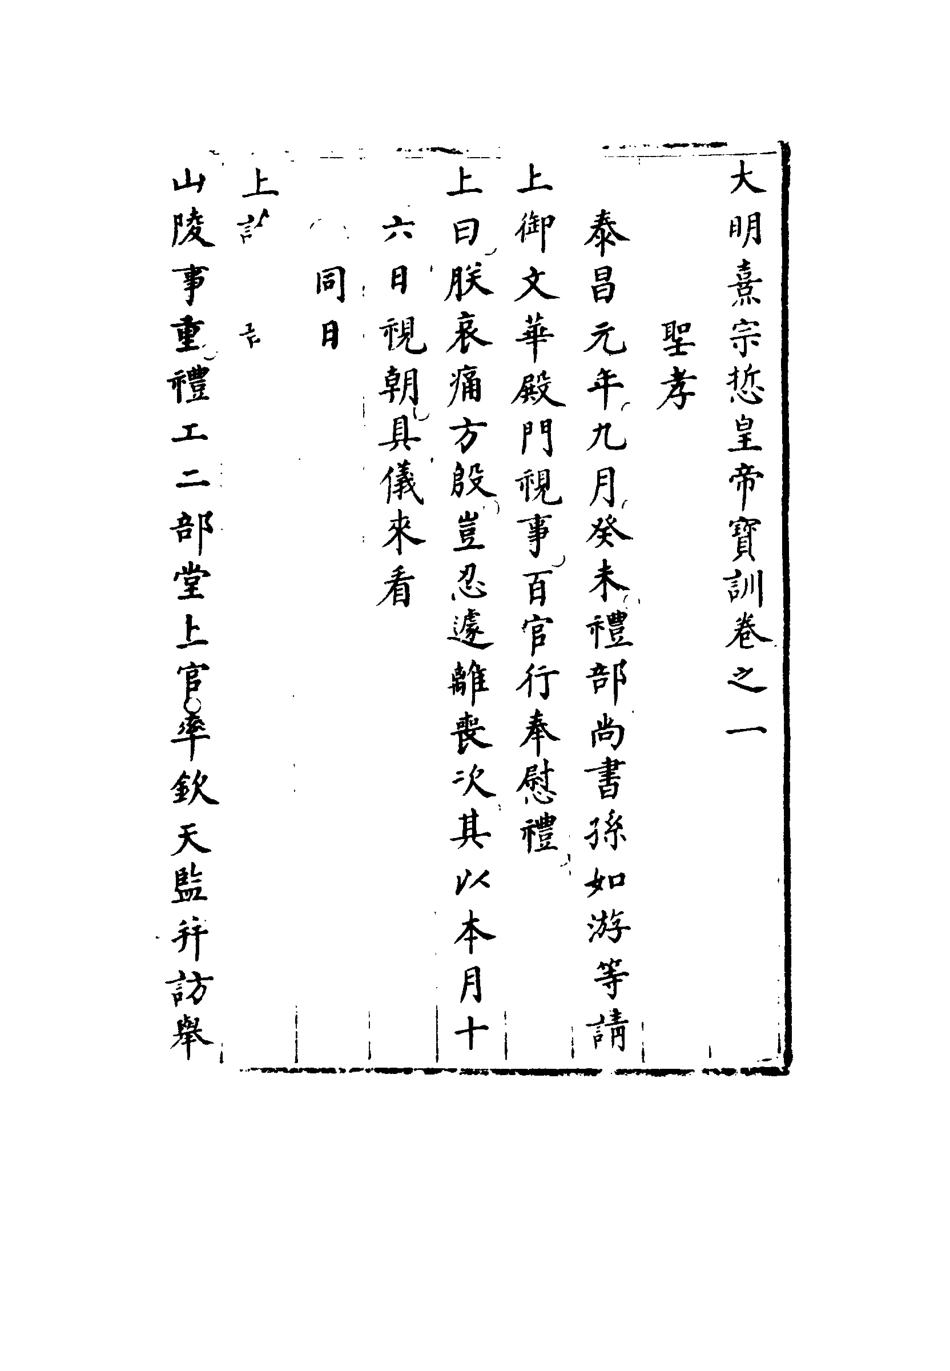 大明熹宗悊皇帝寶訓卷之一
聖孝
泰昌元年九月癸未禮部尚書孫如游等請
上御文華殿門視事百官行奉慰禮
上曰朕哀痛方殷豈忍遽離喪次其以本月十
六日視朝具儀來看
同日
上
山陵事重禮工二部堂上官率欽天監并訪舉